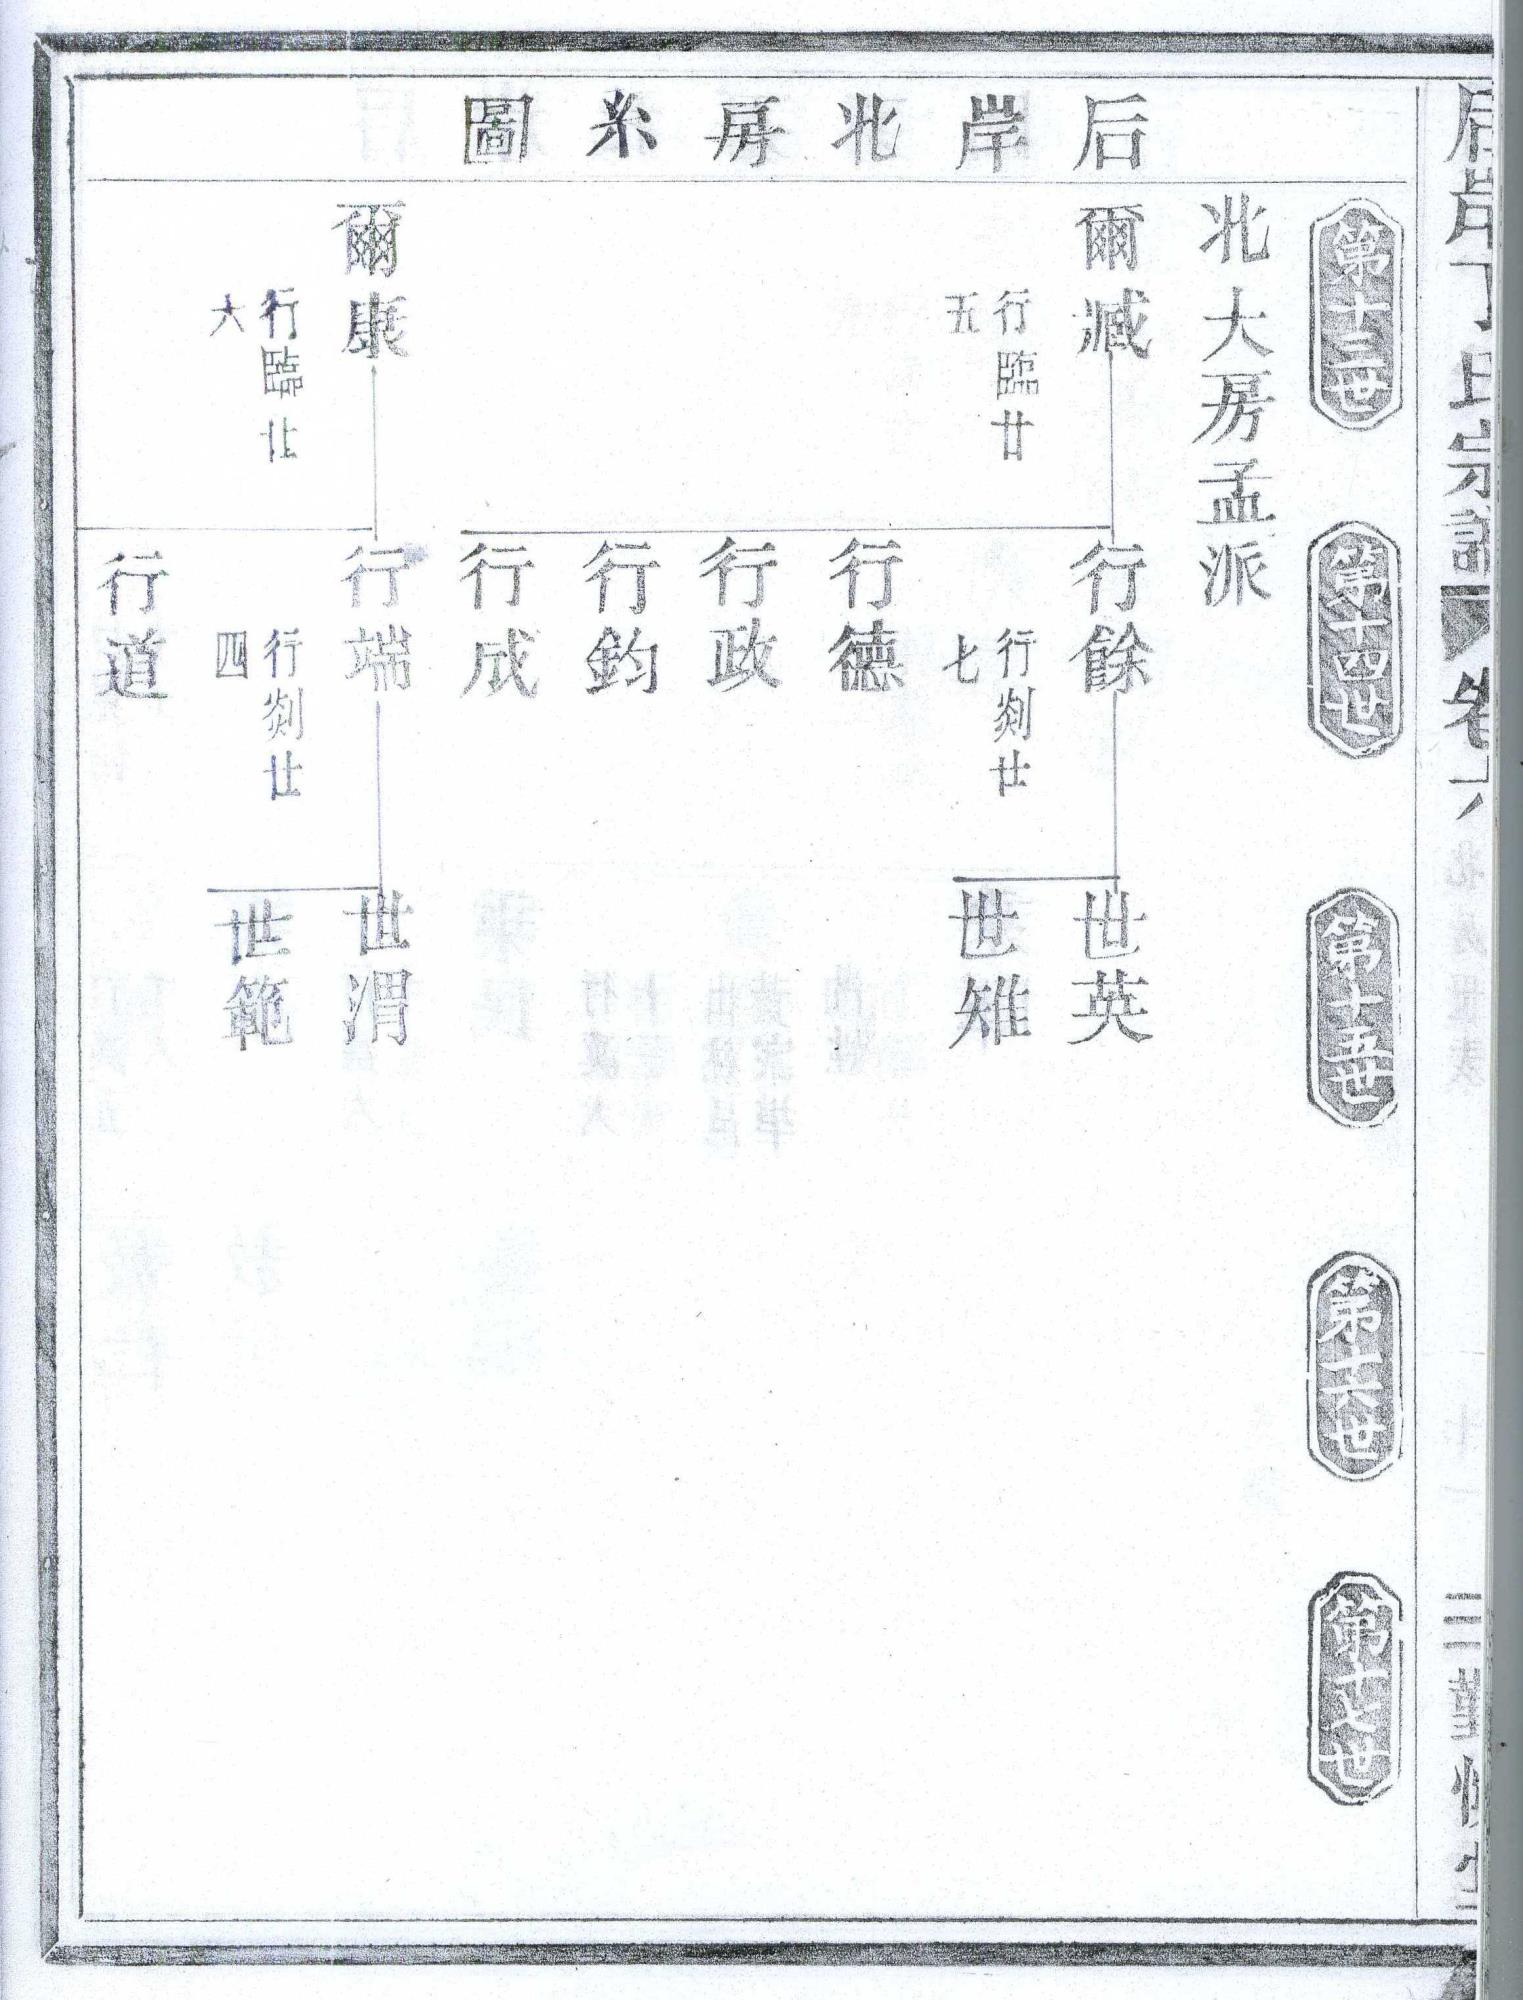 后岸丁氏宗譜
卷六
三
后岸北房系圖
第十三世
第十四世
第十五世
第十六世
第十七世
北大房孟派
爾臧
行臨廿
五
行餘
行剡廿
七
世英
世雉
行德
行政
行鈞
行成
爾康
行臨廿
六
行端
行剡廿
四
世渭
世範
行道